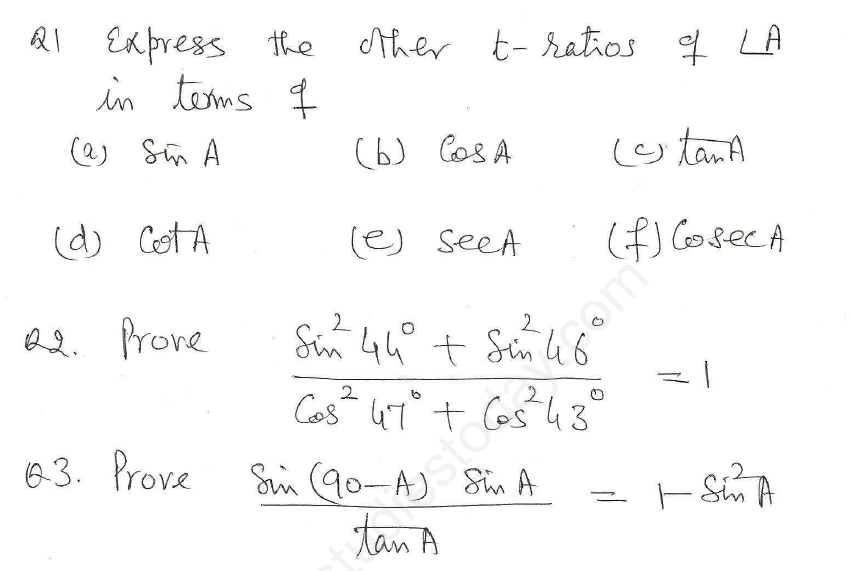 Q1 Express the other t-ratios of ∠A
in terms of
(a) Sin A (b) Cos A (c) tan A
(d) Cot A (e) Sec A (f) Cosec A
Q2. Prove (Sin² 44° + Sin² 46°) / (Cos² 47° + Cos² 43°) = 1
Q3. Prove (Sin (90-A) Sin A) / (tan A) = 1 - Sin² A
studiestoday.com